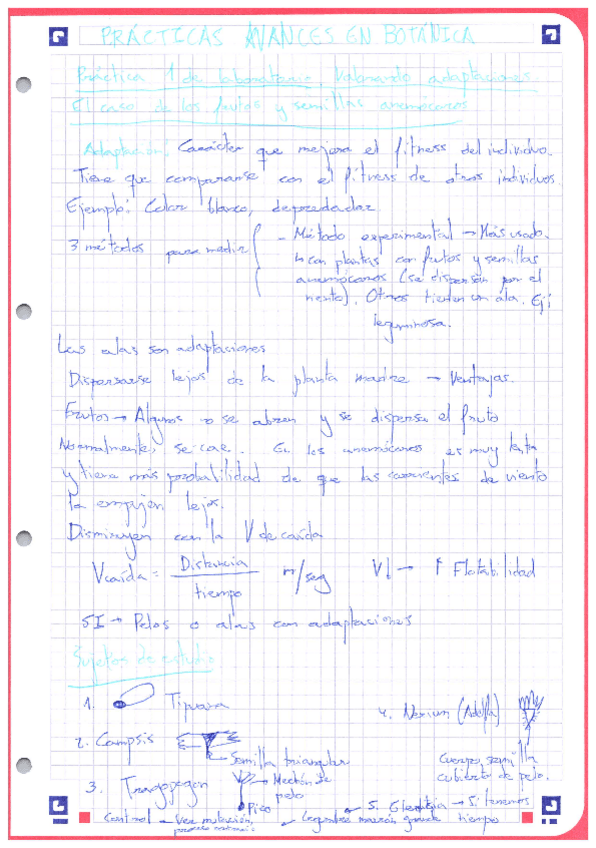 PRÁCTICAS AVANCES EN BOTÁNICA
Práctica 1 de laboratorio. Valorando adaptaciones.
El caso de los frutos y semillas anemócoros
Adaptación: Carácter que mejora el fitness del individuo.
Tiene que compararse con el fitness de otros individuos.
Ejemplo: Color blanco, depredador.
3 métodos para medir
- Método experimental → Más usado.
↳ con plantas con frutos y semillas
anemócoros (se dispersan por el
viento). Otros tienen un ala. Ej:
leguminosa.
Las alas son adaptaciones
Dispersarse lejos de la planta madre → Ventajas.
Frutos → Algunos no se abren y se dispersa el fruto
Normalmente, se cae. En los anemócoros es muy lenta
y tiene más probabilidad de que las corrientes de viento
la empujen lejos.
Disminuyen con la V de caída
Vcaída = Distancia / tiempo m/seg V↓ → ↑ Flotabilidad
SI → Pelos o alas son adaptaciones
Sujetos de estudio
1. Tipuana
2. Campsis
Semilla triangular
3. Tragopogon
Mechón de pelo
Pico
4. Nerium (Adelfa)
Cuerpo, semilla
cubierto de pelo.
5. Gleditsia → Si tenemos
tiempo
Legumbre marrón grande
Control → Ver